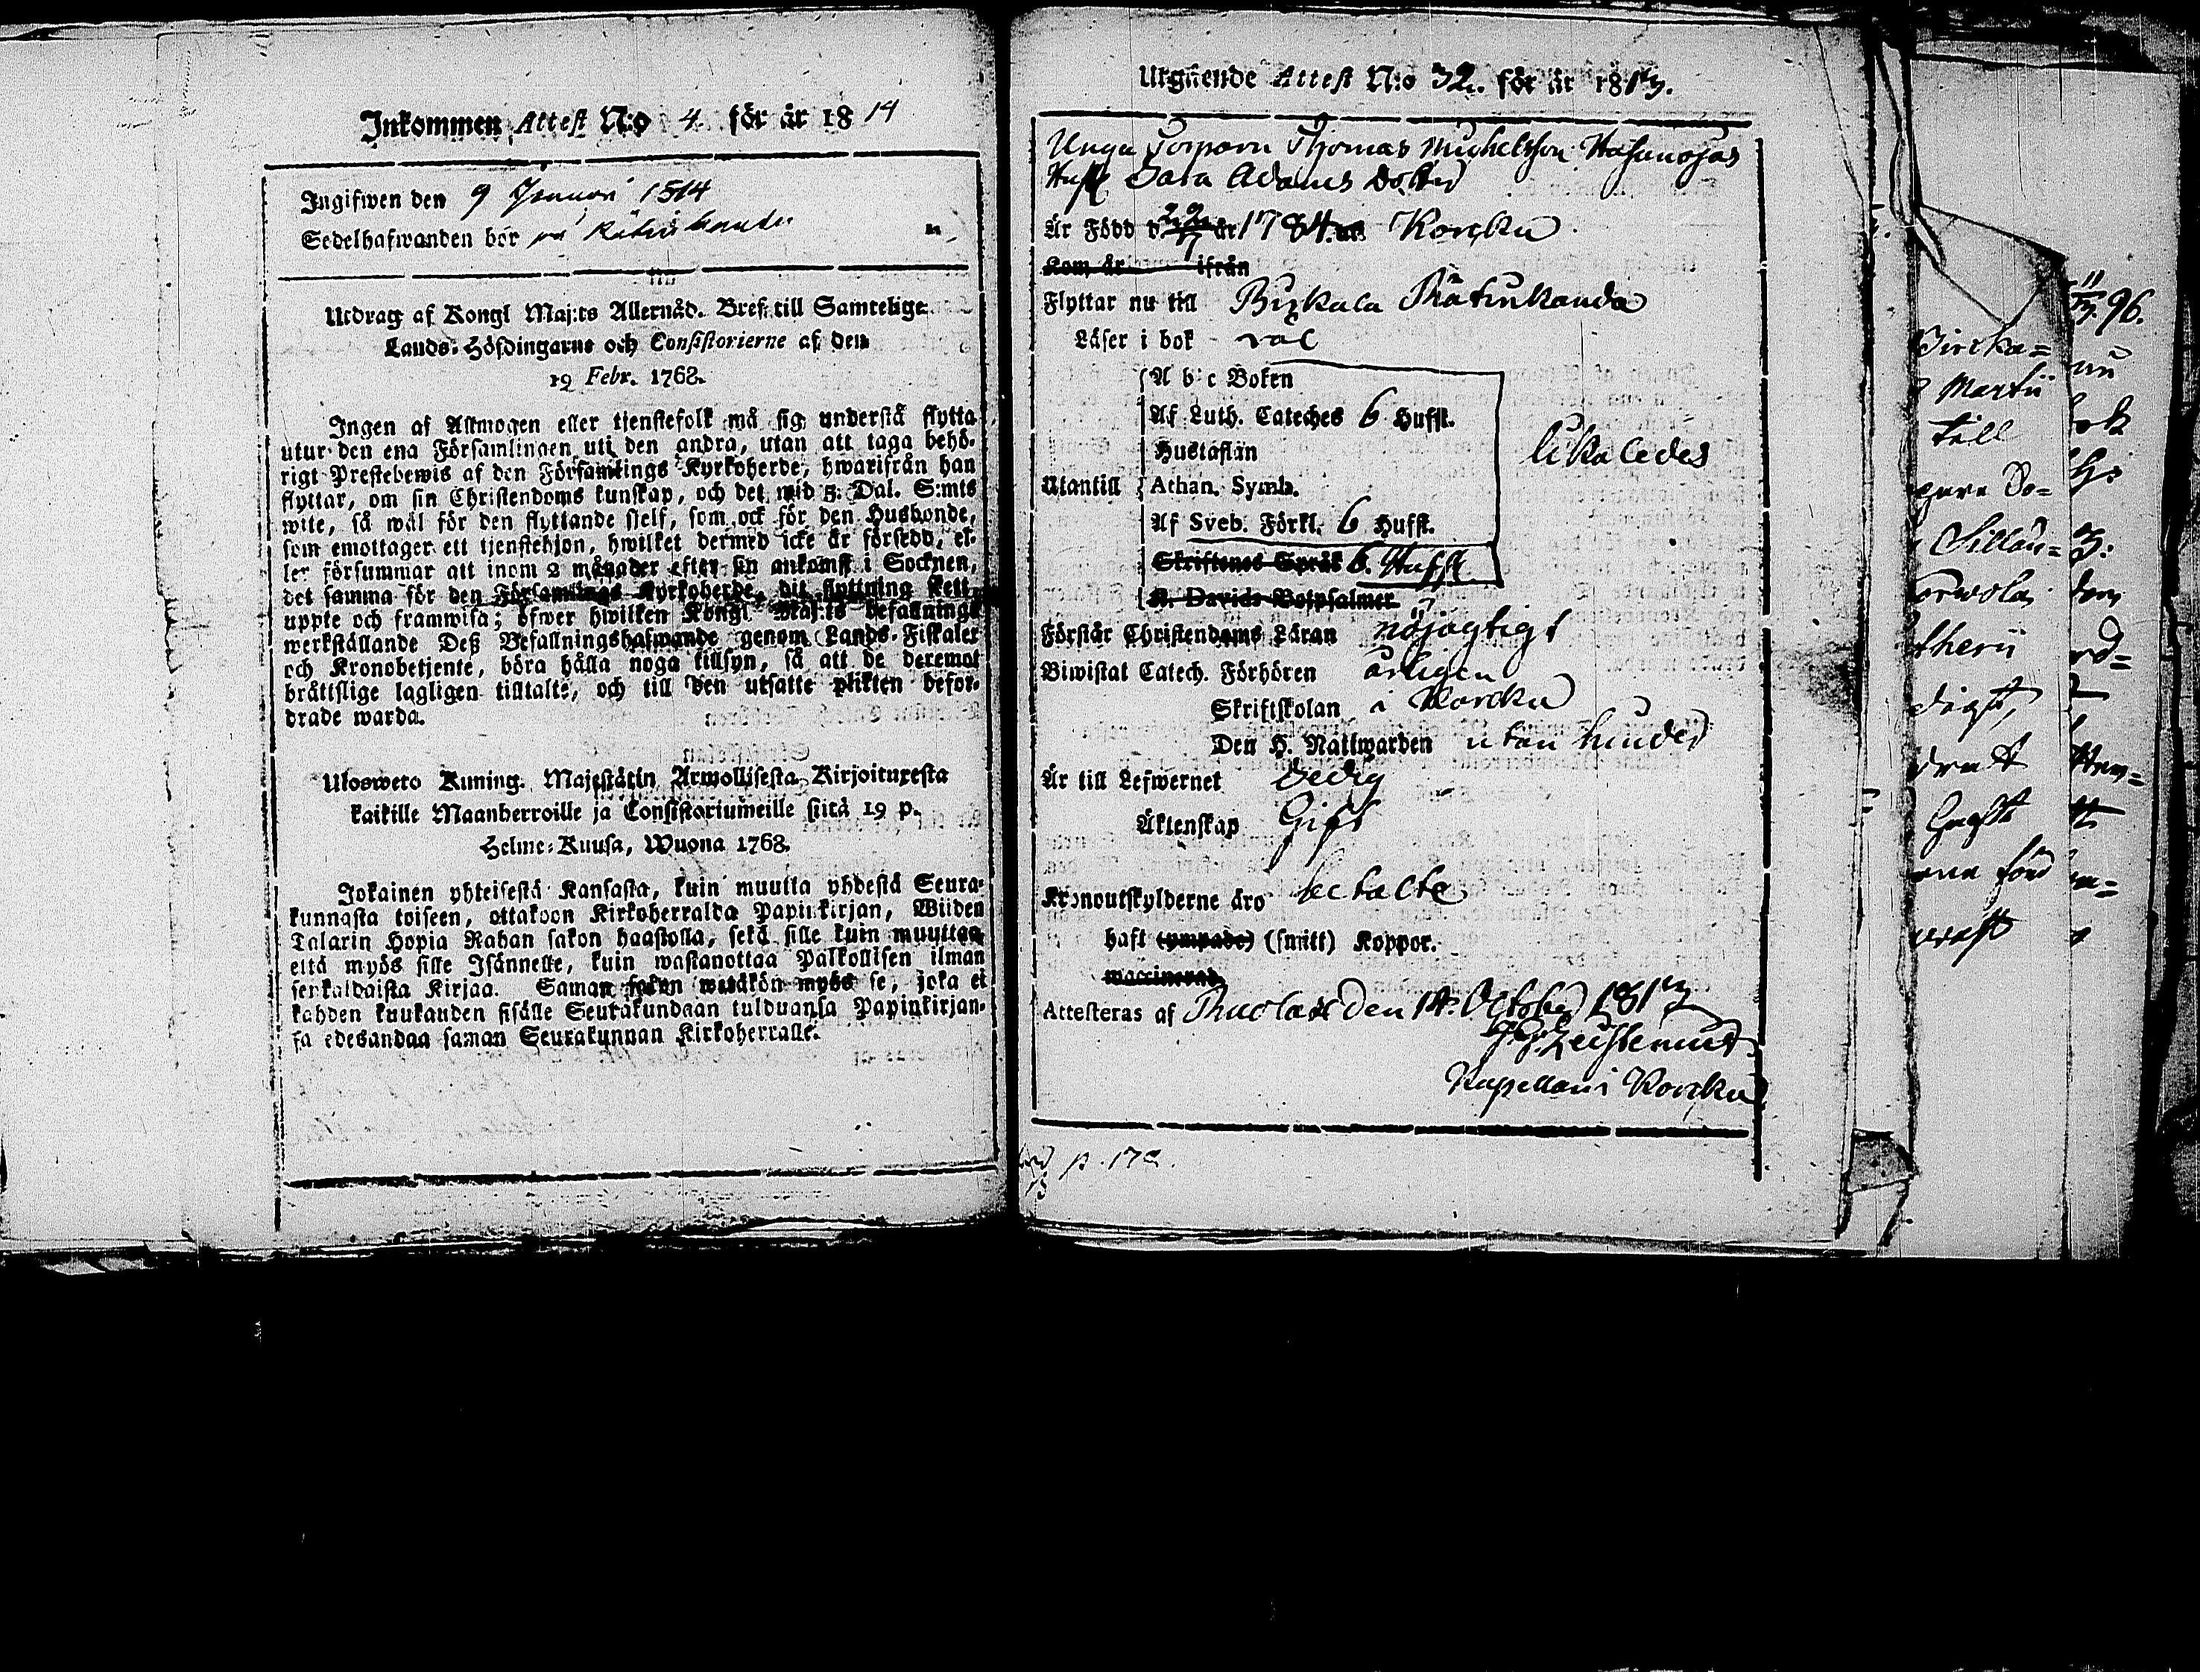 Inkommen Attest N:o 4 för år 1814
Ingifwen den 9 Januari 1814
Sedelhafwanden bor på
Utdrag af Kongl Maj:ts Allernåd. Bref till Samtelige
Lands-Höfdingarne och Consistorierne af den
19 Febr. 1768.
Ingen af Allmogen eller tjenstefolk må sig understå flytta
utur den ena Församlingen uti den andra, utan att taga behö-
rigt Prestebewis af den Församlings Kyrkoherde, hwarifrån han
flyttar, om sin Christendoms kunskap, och det wid 5: Dal. S:mts
wite, så wäl för den flyttande sielf, som ock för den Husbonde,
som emottager ett tjenstehjon, hwilket dermed icke är försedd, el-
ler försummar att inom 2 månader efter sin ankomst i Socknen,
det samma för den Församlings Kyrkoherde, dit flyttning skett,
uppte och framwisa; öfwer hwilken Kongl Maj:ts befallnings
werkställande Deß Befallningshafwande genom Lands-Fiskaler
och Kronobetjente, böra hålla noga tillsyn, så att de deremot
bråttslige lagligen tilltalte, och till den utsatte plikten befor-
drade warda.
Ulosweto Kuning. Majestätin Armollisesta Kirjoituxesta
kaikille Maanherroille ja Consistoriumeille siitä 19 p.
Helme-Kuusa, Wuona 1768.
Jokainen yhteisestä Kansasta, kuin muutta yhdestä Seura-
kunnasta toiseen, ottakoon Kirkoherralda Papinkirjan, Wiiden
Talarin Hopia Rahan sakon haastolla, sekä sille kuin muuttaa,
että myös sille Isännelle, kuin wastanottaa Palkollisen ilman
senkaldaista Kirjaa. Saman sakon wetäkön myös se, joka ei
kahden kuukauden sisälle Seurakundaan tulduansa Papinkirjan-
sa edesandaa saman Seurakunnan Kirkoherralle.
Utgående Attest N:o 32. för år 1813.
Unga Torparn Thomas Michelsson
Hust Sara Adams Dotter
Är Född d 22/7 år 1784. Korcku
Kom år ifrån
Flyttar nu till Birkala Rätinkanda
Läser i bok wäl
A b c Boken
Af Luth. Cateches 6 Hufst.
Hustaflan
likaledes
Utantill Athan. Symb.
Af Sveb. Förkl. 6 Hufst.
Skriftenes Språk 6. Hufst
K. Davids Botpsalmer
Förstår Christendoms Läran nöjagtigt
Biwistat Catech. Förhören årligen
Skriftskolan i Korcku
Den H. Nattwarden utan hinder
Är till Lefwernet Sedig
Äktenskap Gift
Kronoutskylderne äro betalte
haft (ympade) (smitt) Koppor.
waccinerad
Attesteras af den 14 October 1813
Kapellan i Korcku
p. 172.